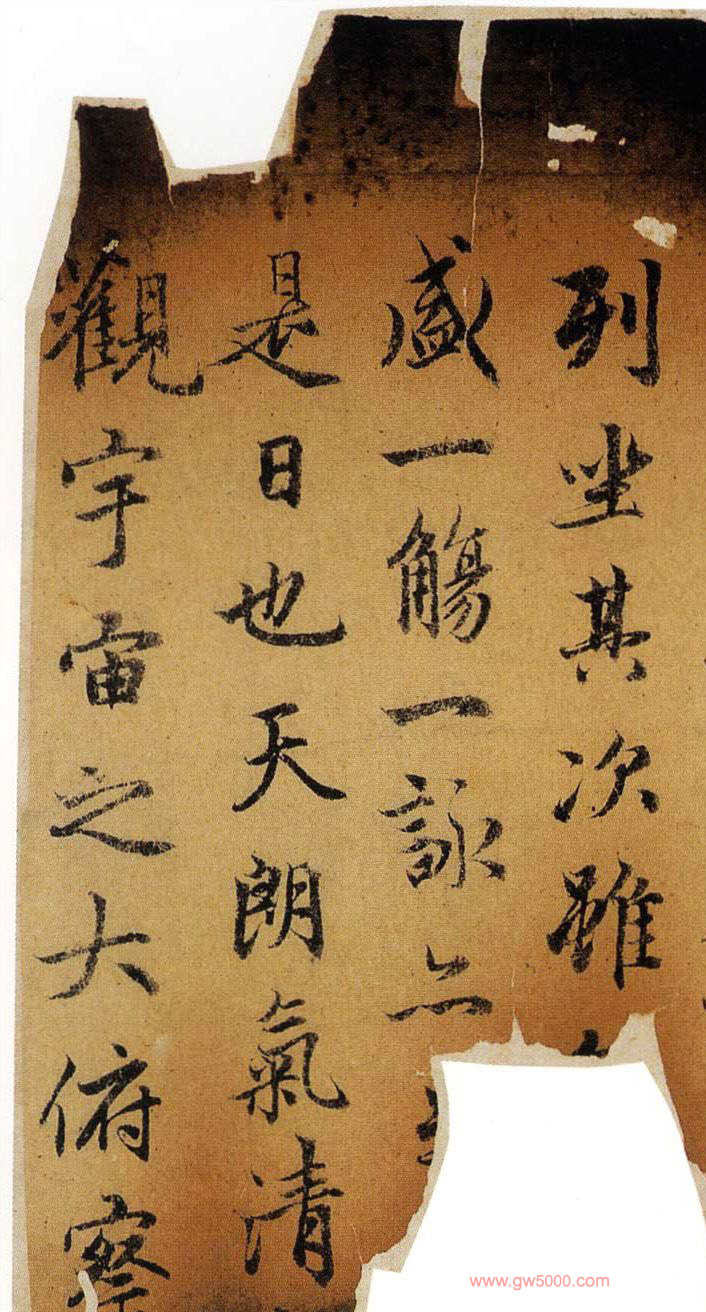 列坐其次雖
盛一觴一詠亦
是日也天朗氣清
觀宇宙之大俯察
www.gw5000.com